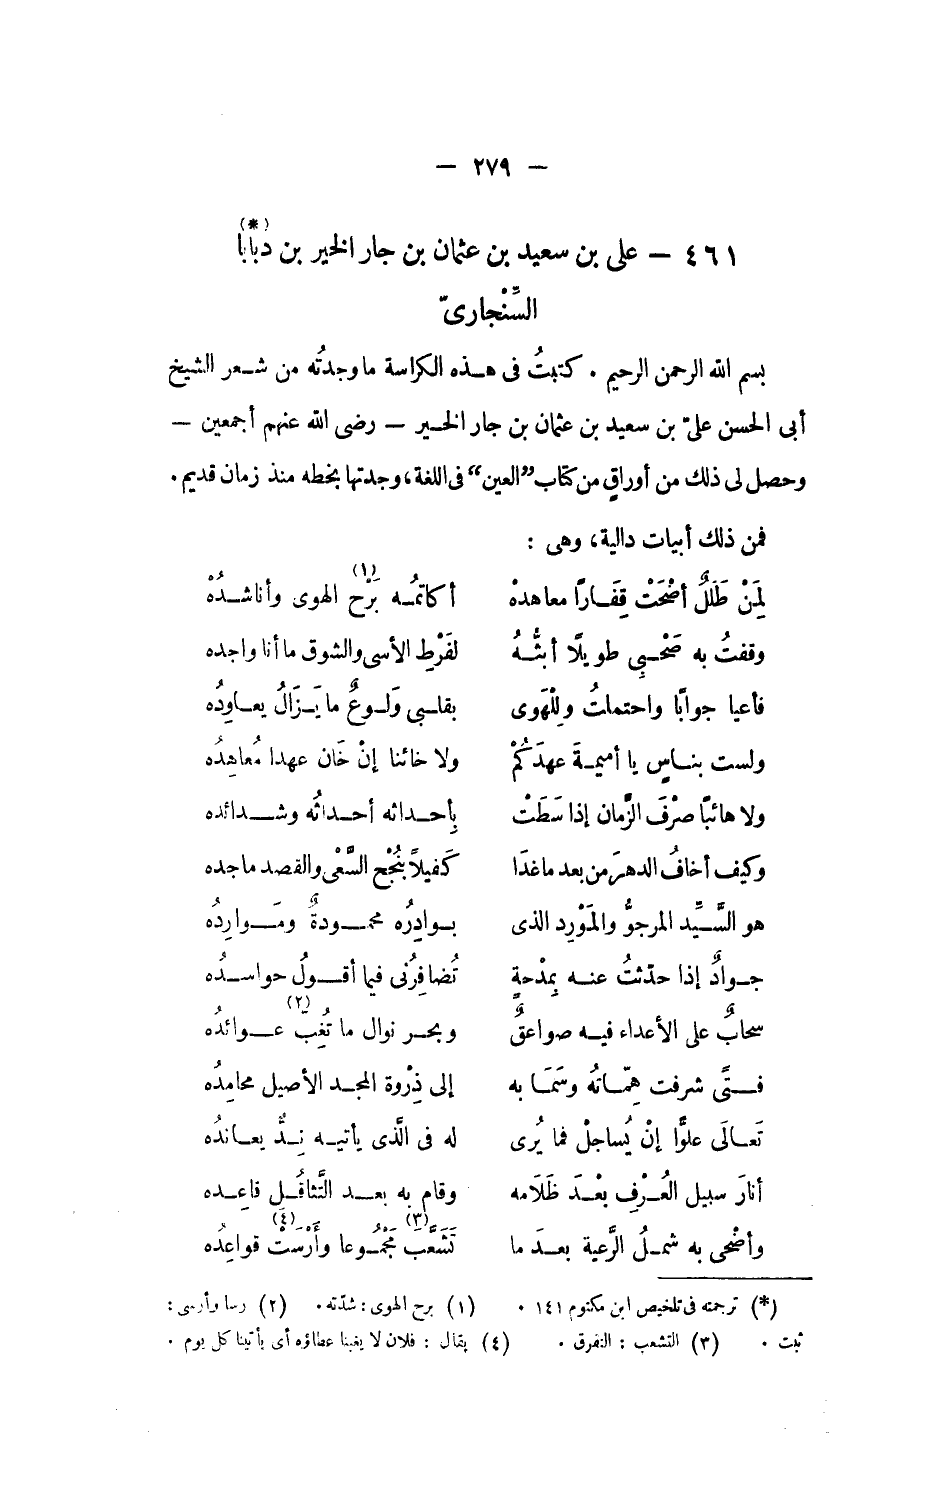 — ٢٧٩ —
٤٦١ — على بن سعيد بن عثمان بن جار الخير بن دبابا (*)
السِّنْجارىّ
بسم الله الرحمن الرحيم . كتبتُ فى هذه الكراسة ما وجدتُه من شعر الشيخ
أبى الحسن علىّ بن سعيد بن عثمان بن جار الخير — رضى الله عنهم أجمعين —
وحصل لى ذلك من أوراقٍ من كتاب “العين” فى اللغة، وجدتها بخطه منذ زمان قديم .
فمن ذلك أبيات دالية، وهى :
لِمَنْ طَلَلٌ أضْحَتْ قِفَارًا معاهدهْ أكاتمُه بَرْح (١) الهوى وأناشدُهْ
وقفتُ به صَحْبِى طويلًا أبثُّهُ لفَرْطِ الأسى والشوق ما أنا واجده
فأعيا جوابًا واحتملتُ ولِلْهَوى بقلبى وَلوعٌ ما يَزَالُ يعاودُه
ولست بناسٍ يا أميمةَ عهدَكُمْ ولا خائنا إنْ خَان عهدا مُعاهِدُه
ولا هائبًا صرْفَ الزَّمان إذا سَطَتْ بِأحداثه أحداثُه وشدائده
وكيف أخافُ الدهرَ من بعد ما غدَا كَفيلًا بنُجْح السَّعْى والقصد ماجده
هو السَّيِّد المرجوُّ والمَوْرِد الذى بوادِرُه محمودةٌ ومَوارِدُه
جوادٌ إذا حدّثتُ عنه بِمِدْحةٍ تُضافِرُنى فيما أقولُ حواسدُه
سحابٌ على الأعداء فيه صواعقٌ وبحر نوال ما تُغِبّ (٢) عوائدُه
فتًى شرفت هِمّاتُه وسَمَا به إلى ذِرْوة المجد الأصيل محامِدُه
تَعالَى علوًّا إنْ يُساجلْ فما يُرى له فى الَّذى يأتيه نِدٌّ يعاندُه
أنارَ سبيل العُرْفِ بعْدَ ظَلَامه وقام به بعد التَّثاقُل قاعده
وأضْحى به شملُ الرَّعية بعدَ ما تَشَعَّب (٣) مَجْموعا وأَرْسَتْ (٤) قواعِدُه
(*) ترجمته فى تلخيص ابن مكتوم ١٤١ . (١) برح الهوى : شدّته . (٢) رسا وأرسى :
ثبت . (٣) التشعب : التفرق . (٤) يقال : فلان لا يغبنا عطاؤه أى يأتينا كل يوم .